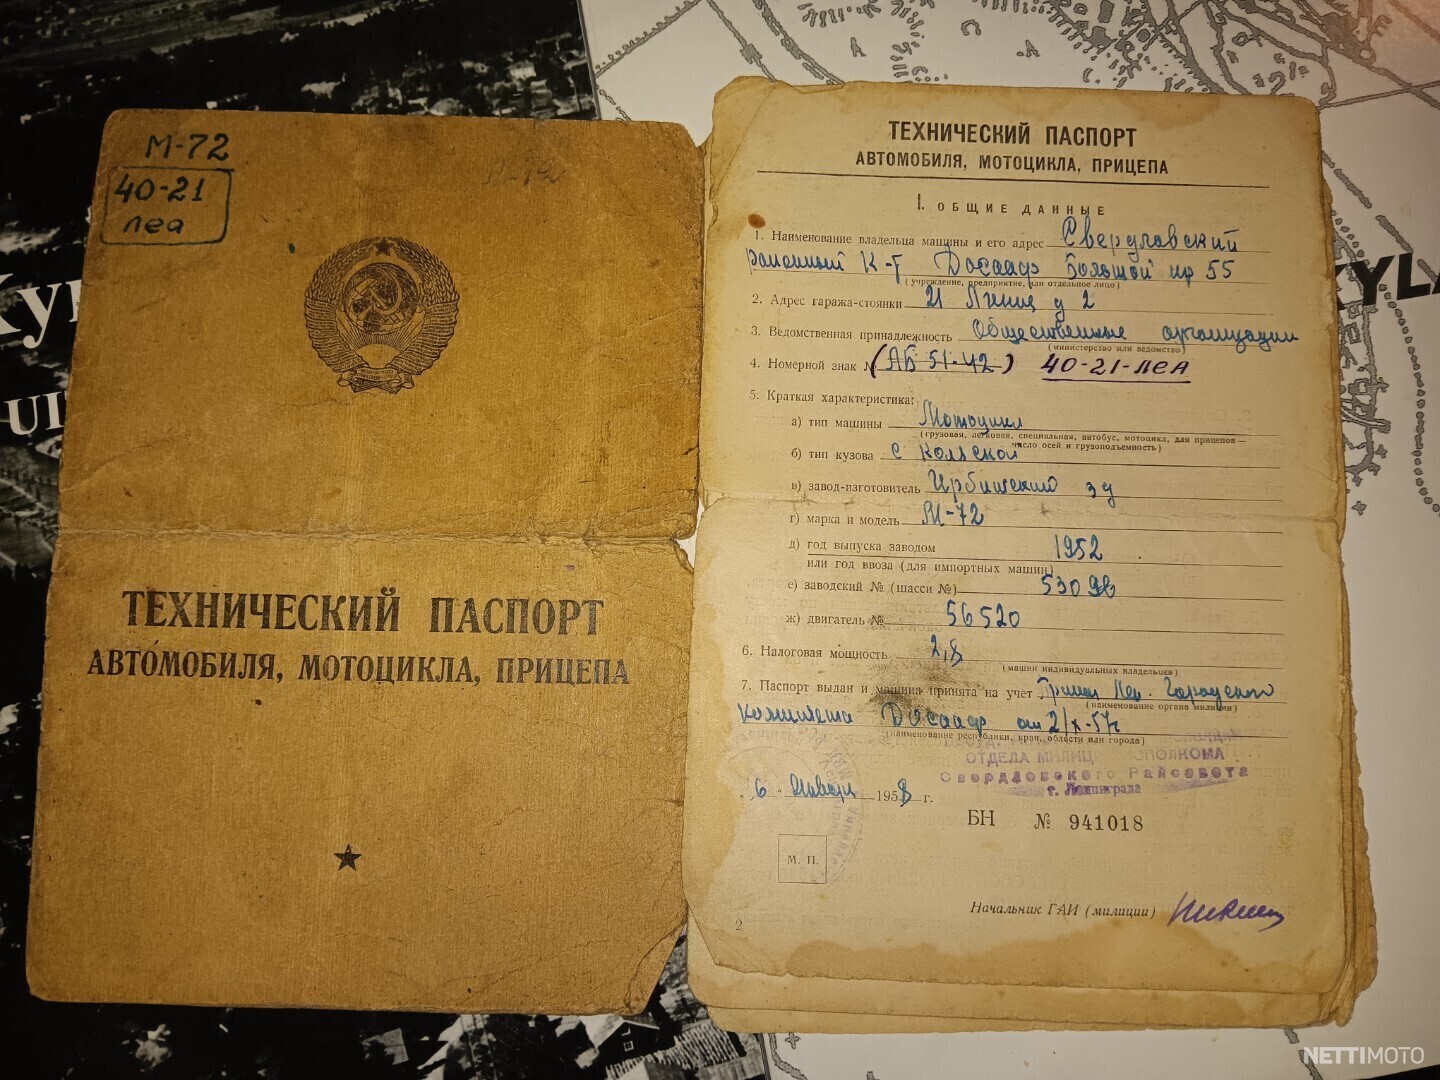 М-72
40-21
леа
М-72
ТЕХНИЧЕСКИЙ ПАСПОРТ
АВТОМОБИЛЯ, МОТОЦИКЛА, ПРИЦЕПА
ТЕХНИЧЕСКИЙ ПАСПОРТ
АВТОМОБИЛЯ, МОТОЦИКЛА, ПРИЦЕПА
I. ОБЩИЕ ДАННЫЕ
1. Наименование владельца машины и его адрес Свердловский
районный К-т Досааф Большой пр 55
(учреждение, предприятие, или отдельное лицо)
2. Адрес гаража-стоянки 21 Линия д 2
3. Ведомственная принадлежность Общественные организации
(министерство или ведомство)
4. Номерной знак № (АБ 51-42) 40-21-леа
5. Краткая характеристика:
а) тип машины Мотоцикл
(грузовая, легковая, специальная, автобус, мотоцикл, для прицепов —
число осей и грузоподъемность)
б) тип кузова с коляской
в) завод-изготовитель Ирбитский з-д
г) марка и модель М-72
д) год выпуска заводом 1952
или год ввоза (для импортных машин)
е) заводский № (шасси №) 530
ж) двигатель № 56520
6. Налоговая мощность 2,8
(машин индивидуальных владельцев)
7. Паспорт выдан и машина принята на учет Лен. Городского
(наименование органа милиции)
комитета Досааф от 2/X-57г
(наименование республики, края, области или города)
ОТДЕЛА МИЛИЦ ИСПОЛКОМА
Свердловского Райсовета
г. Ленинграда
6 Января 1958 г.
БН № 941018
М. П.
Начальник ГАИ (милиции)
2
KYLÄ
NETTIMOTO